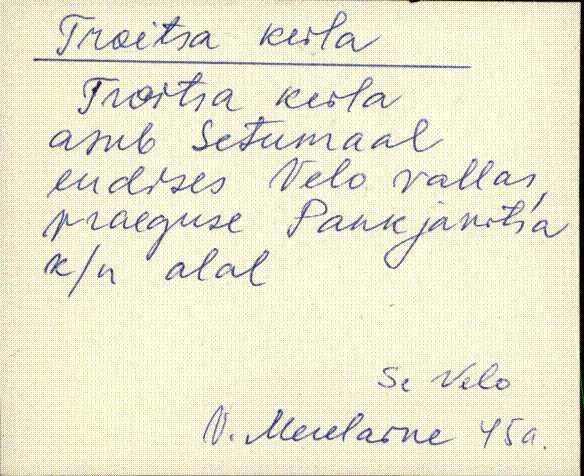 Troitsa keila
Troitsa keila
asub Setumaal
endises Velo vallas,
praeguse Pankjavitsa
k/n alal
Se Velo
V. Merelaine 45a.